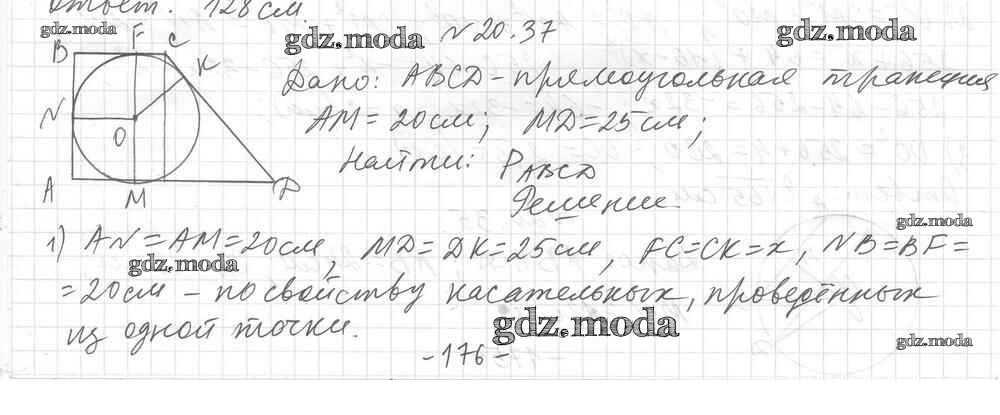 ответ. 128 см.
gdz.moda
gdz.moda
gdz.moda
№ 20.37
B F C K
N O
A M D
Дано: ABCD - прямоугольная трапеция
AM = 20 см; MD = 25 см;
Найти: P ABCD
Решение.
gdz.moda
1) AN = AM = 20 см, MD = DK = 25 см, FC = CK = x, NB = BF =
gdz.moda
= 20 см - по свойству касательных, проведённых
из одной точки.
gdz.moda
gdz.moda
- 176 -